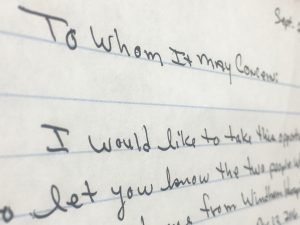 Sept.
To Whom It May Concern:
I would like to take this
to let you know the two people
from Windham